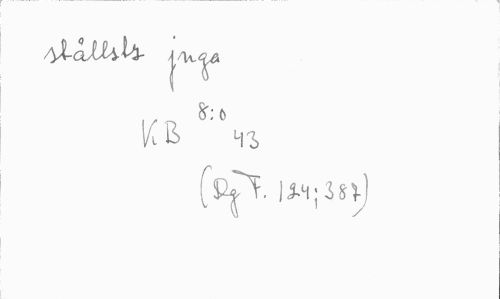 ställsts jnga
KB 8:0 43
(Dg F. 124; 387)